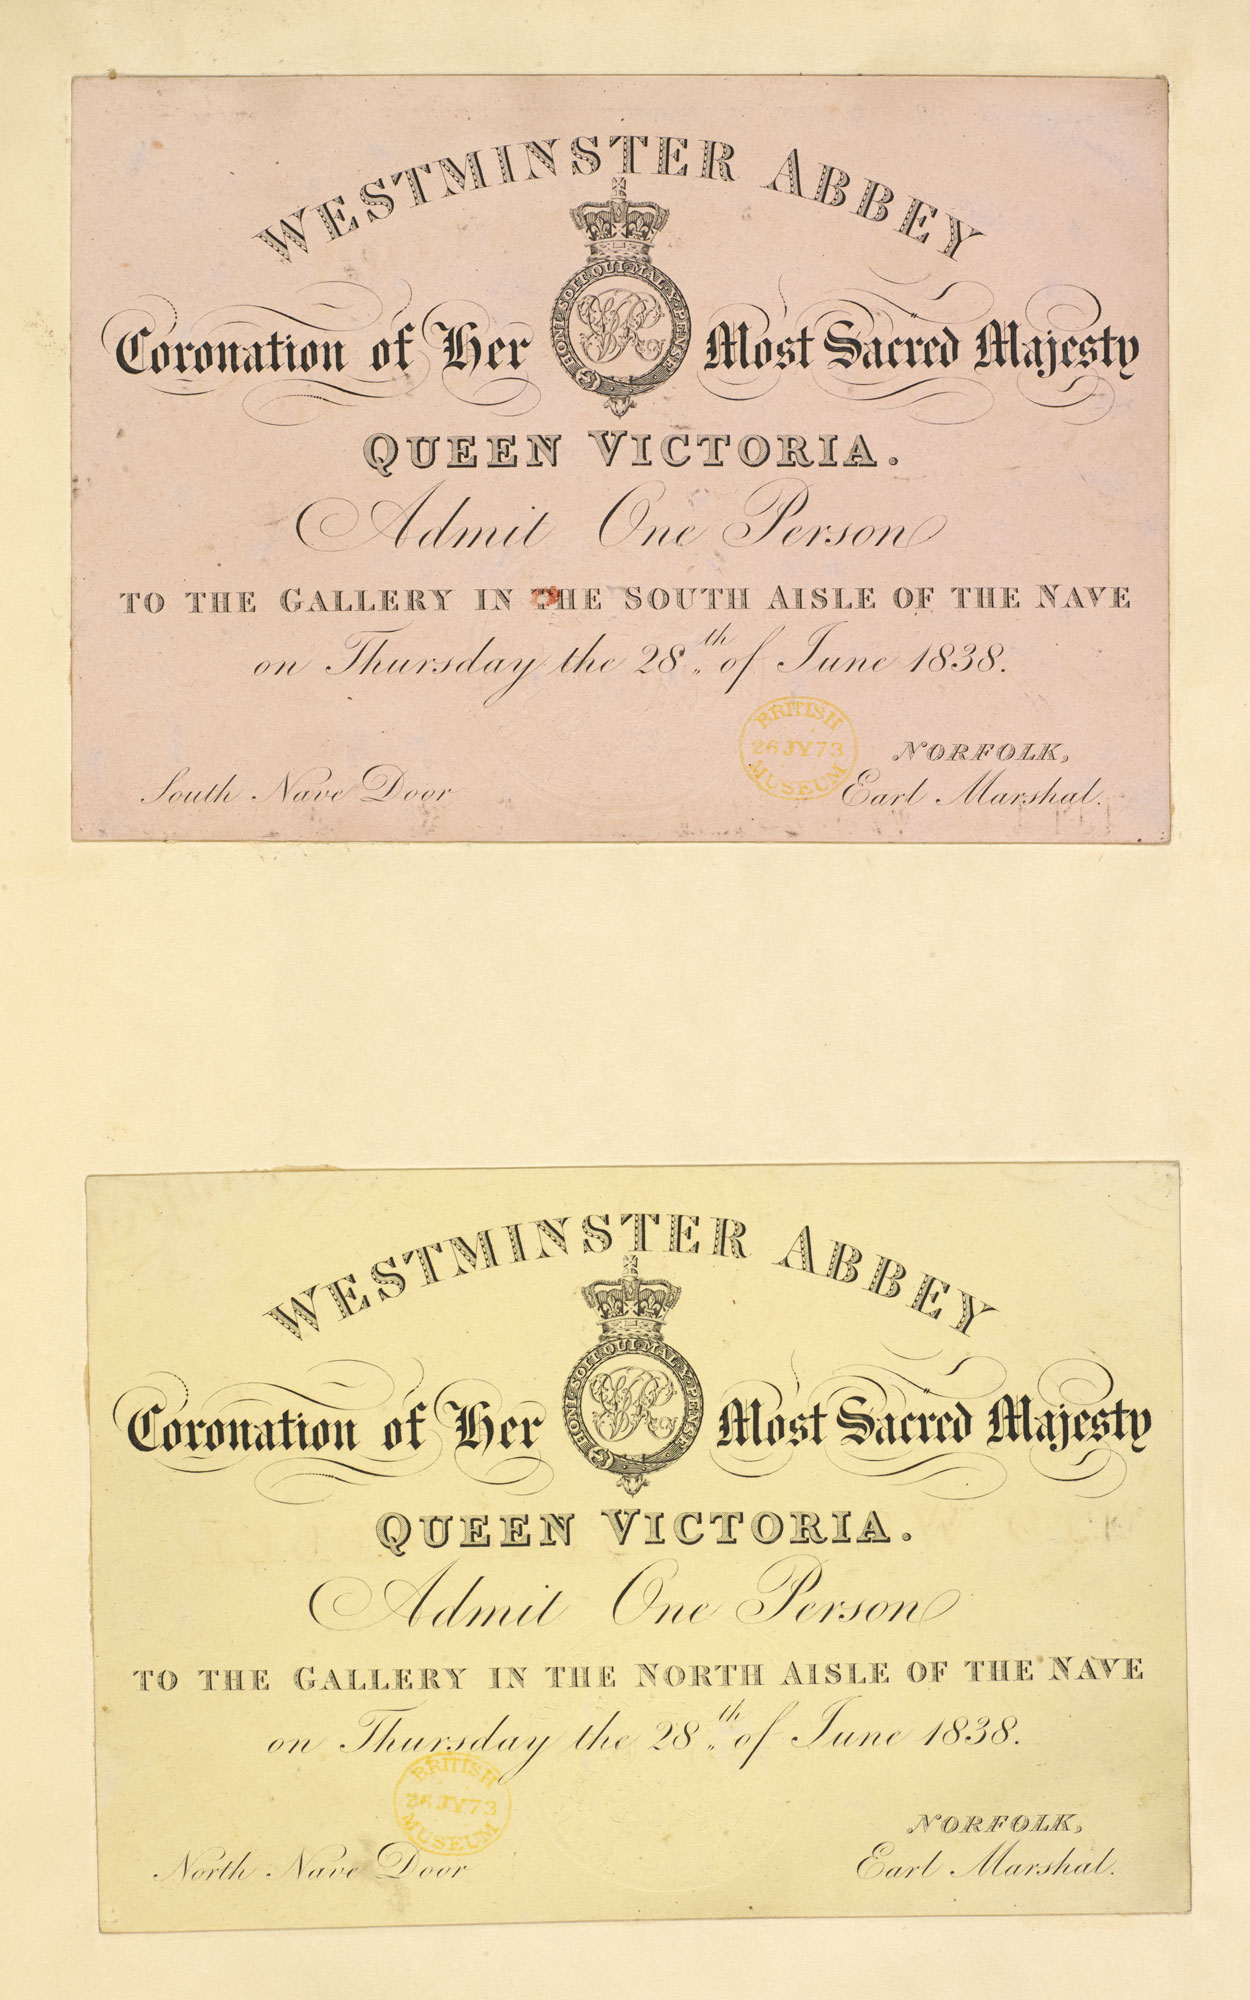 WESTMINSTER ABBEY
HONI·SOIT·QUI·MAL·Y·PENSE
VR
Coronation of Her Most Sacred Majesty
QUEEN VICTORIA.
Admit One Person
TO THE GALLERY IN THE SOUTH AISLE OF THE NAVE
on Thursday the 28th of June 1838.
BRITISH
26 JY 73
MUSEUM
NORFOLK,
South Nave Door
Earl Marshal.
WESTMINSTER ABBEY
HONI·SOIT·QUI·MAL·Y·PENSE
VR
Coronation of Her Most Sacred Majesty
QUEEN VICTORIA.
Admit One Person
TO THE GALLERY IN THE NORTH AISLE OF THE NAVE
on Thursday the 28th of June 1838.
BRITISH
26 JY 73
MUSEUM
NORFOLK,
North Nave Door
Earl Marshal.